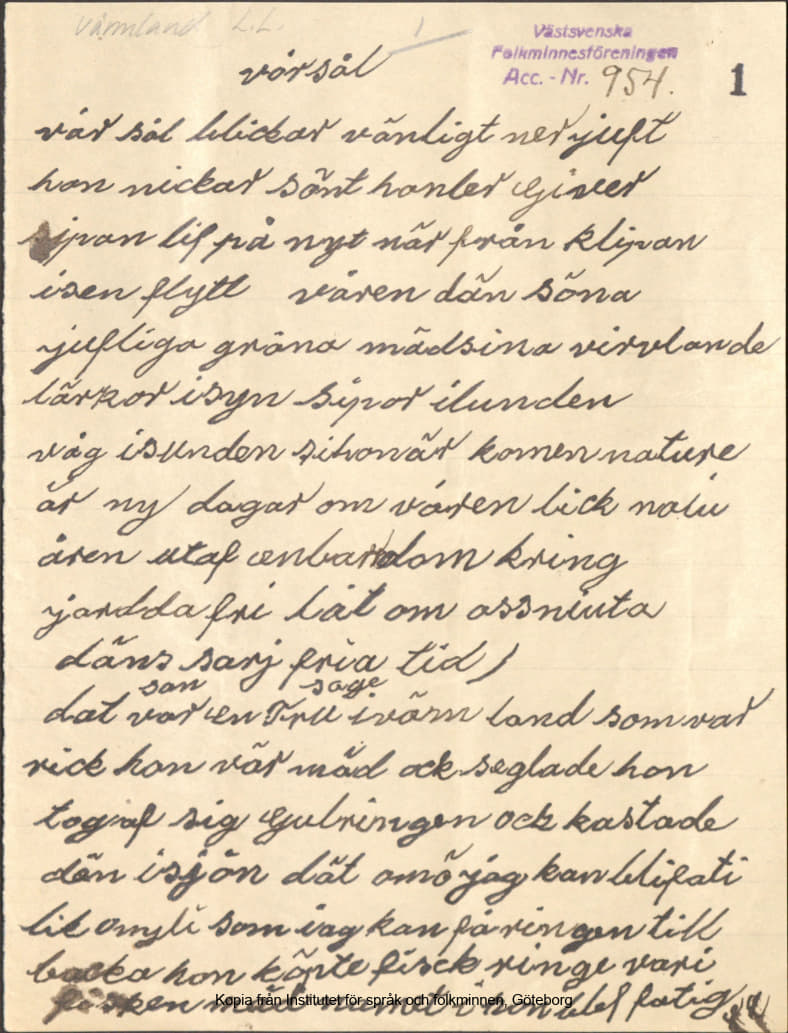 värmland L.L. 1
Västsvenska
Folkminnesföreningen
Acc. - Nr. 954. 1
vårsål
vår sål blickar vänligt ner juft
hon nickar sönt hon ler Giver
sipan lif på nyt när från klipan
isen flytt våren dän söna
jufliga gräna mädsina virvlande
lärkor isyn sipor ilunden
våg isunden sihonär komen nature
är ny dagar om våren lick nolu
åren utaf enbarndom kring
jordda fri låt om ossniuta
däns sarj fria tid
san sage
dat var en Fru i värm land som var
rick hon vär mäd ock seglade hon
tog af sig Gulringen ock kastade
dän isjön dät omöjag kan blifati
lik omyli som iag kan få ringen till
backa hon köpte fisck ringe vari
fisken mäd hon blef fatig
Kopia från Institutet för språk och folkminnen, Göteborg